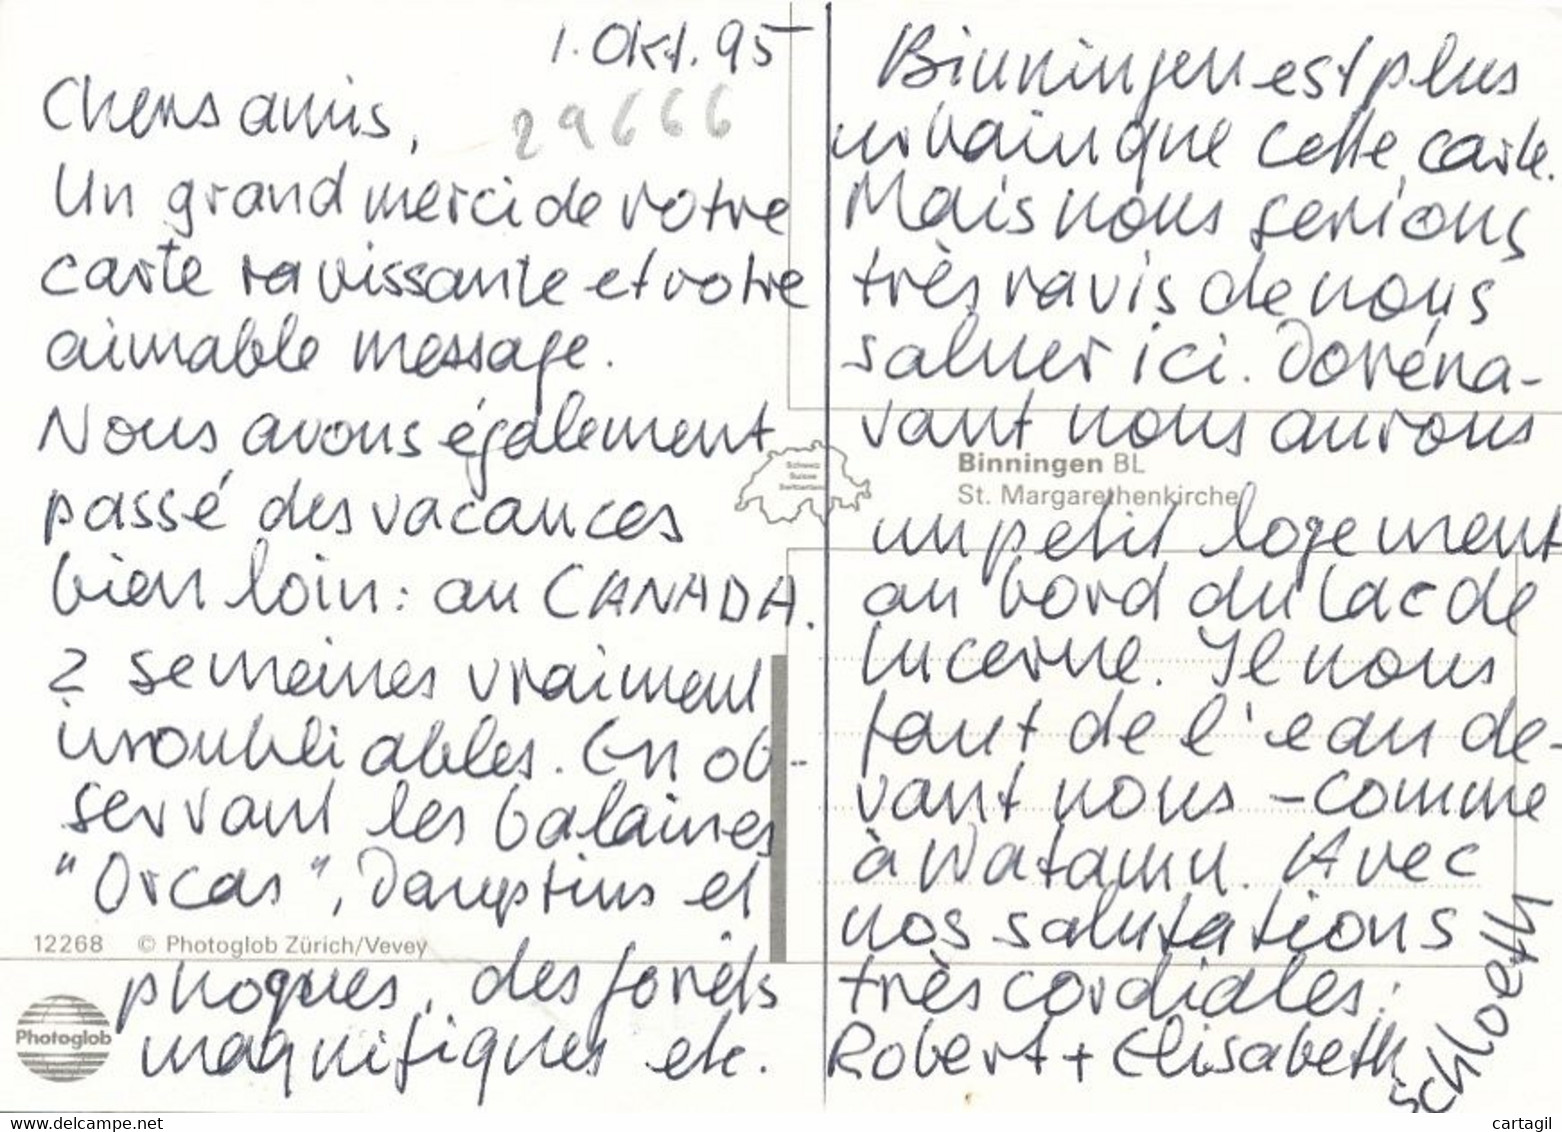 1. Okt. 95
Chers amis,
29666
Un grand merci de votre
carte ravissante et votre
aimable message.
Nous avons également
passé des vacances
bien loin: au CANADA.
2 semeines vraiment
inoubliables. En ob-
servant les balaines
"Orcas", Dauphins et
12268 © Photoglob Zürich/Vevey
phoques, des forêts
Photoglob
magnifiques etc.
Binningen est plus
urbain que cette carte.
Mais nous serions
très ravis de nous
saluer ici. Doréna-
vant nous aurons
Schweiz
Suisse
Switzerland
Binningen BL
St. Margarethenkirche
un petit logement
au bord du lac de
Lucerne. Il nous
faut de l'eau de-
vant nous - comme
à Watamu. Avec
nos salutations
très cordiales:
Robert + Elisabeth
Schloeth
www.delcampe.net
cartagil